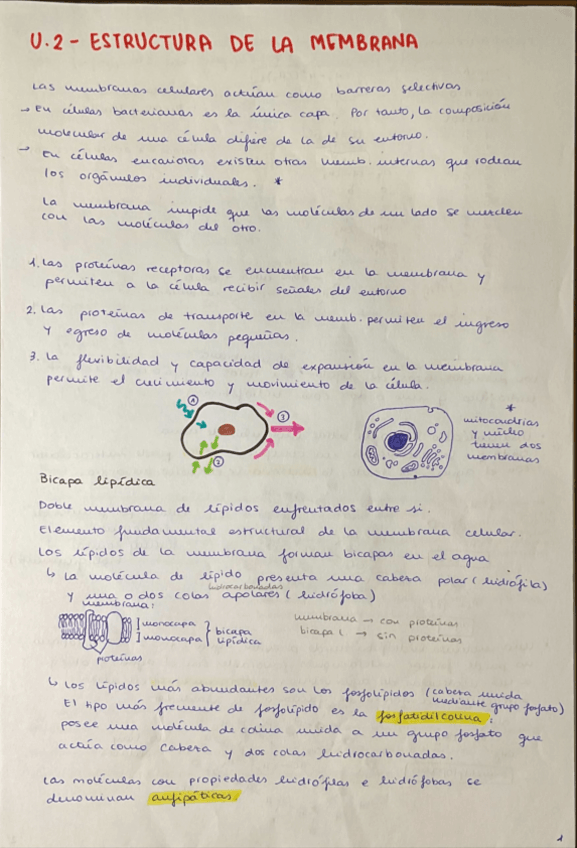 U.2 - ESTRUCTURA DE LA MEMBRANA
Las membranas celulares actúan como barreras selectivas
→ En células bacterianas es la única capa. Por tanto, la composición
molecular de una célula difiere de la de su entorno.
→ En células eucariotas existen otras memb. internas que rodean
los orgánulos individuales. *
La membrana impide que las moléculas de un lado se mezclen
con las moléculas del otro.
1. Las proteínas receptoras se encuentran en la membrana y
permiten a la célula recibir señales del entorno
2. Las proteínas de transporte en la memb. permiten el ingreso
y egreso de moléculas pequeñas.
3. La flexibilidad y capacidad de expansión en la membrana
permite el crecimiento y movimiento de la célula.
1
3
2
*
mitocondrias
y núcleo
tienen dos
membranas
Bicapa lipídica
Doble membrana de lípidos enfrentados entre si.
Elemento fundamental estructural de la membrana celular.
Los lípidos de la membrana forman bicapas en el agua
↳ La molécula de lípido presenta una cabeza polar (hidrófila)
hidrocarbonadas
y una o dos colas apolares (hidrófoba)
membrana:
monocapa
monocapa
bicapa
lipídica
proteínas
membrana → con proteínas
bicapa l → sin proteínas
↳ Los lípidos más abundantes son los fosfolípidos (cabeza unida
mediante grupo fosfato)
El tipo más frecuente de fosfolípido es la fosfatidilcolina:
posee una molécula de colina unida a un grupo fosfato que
actúa como cabeza y dos colas hidrocarbonadas.
Las moléculas con propiedades hidrófilas e hidrófobas se
denominan anfipáticas.
1